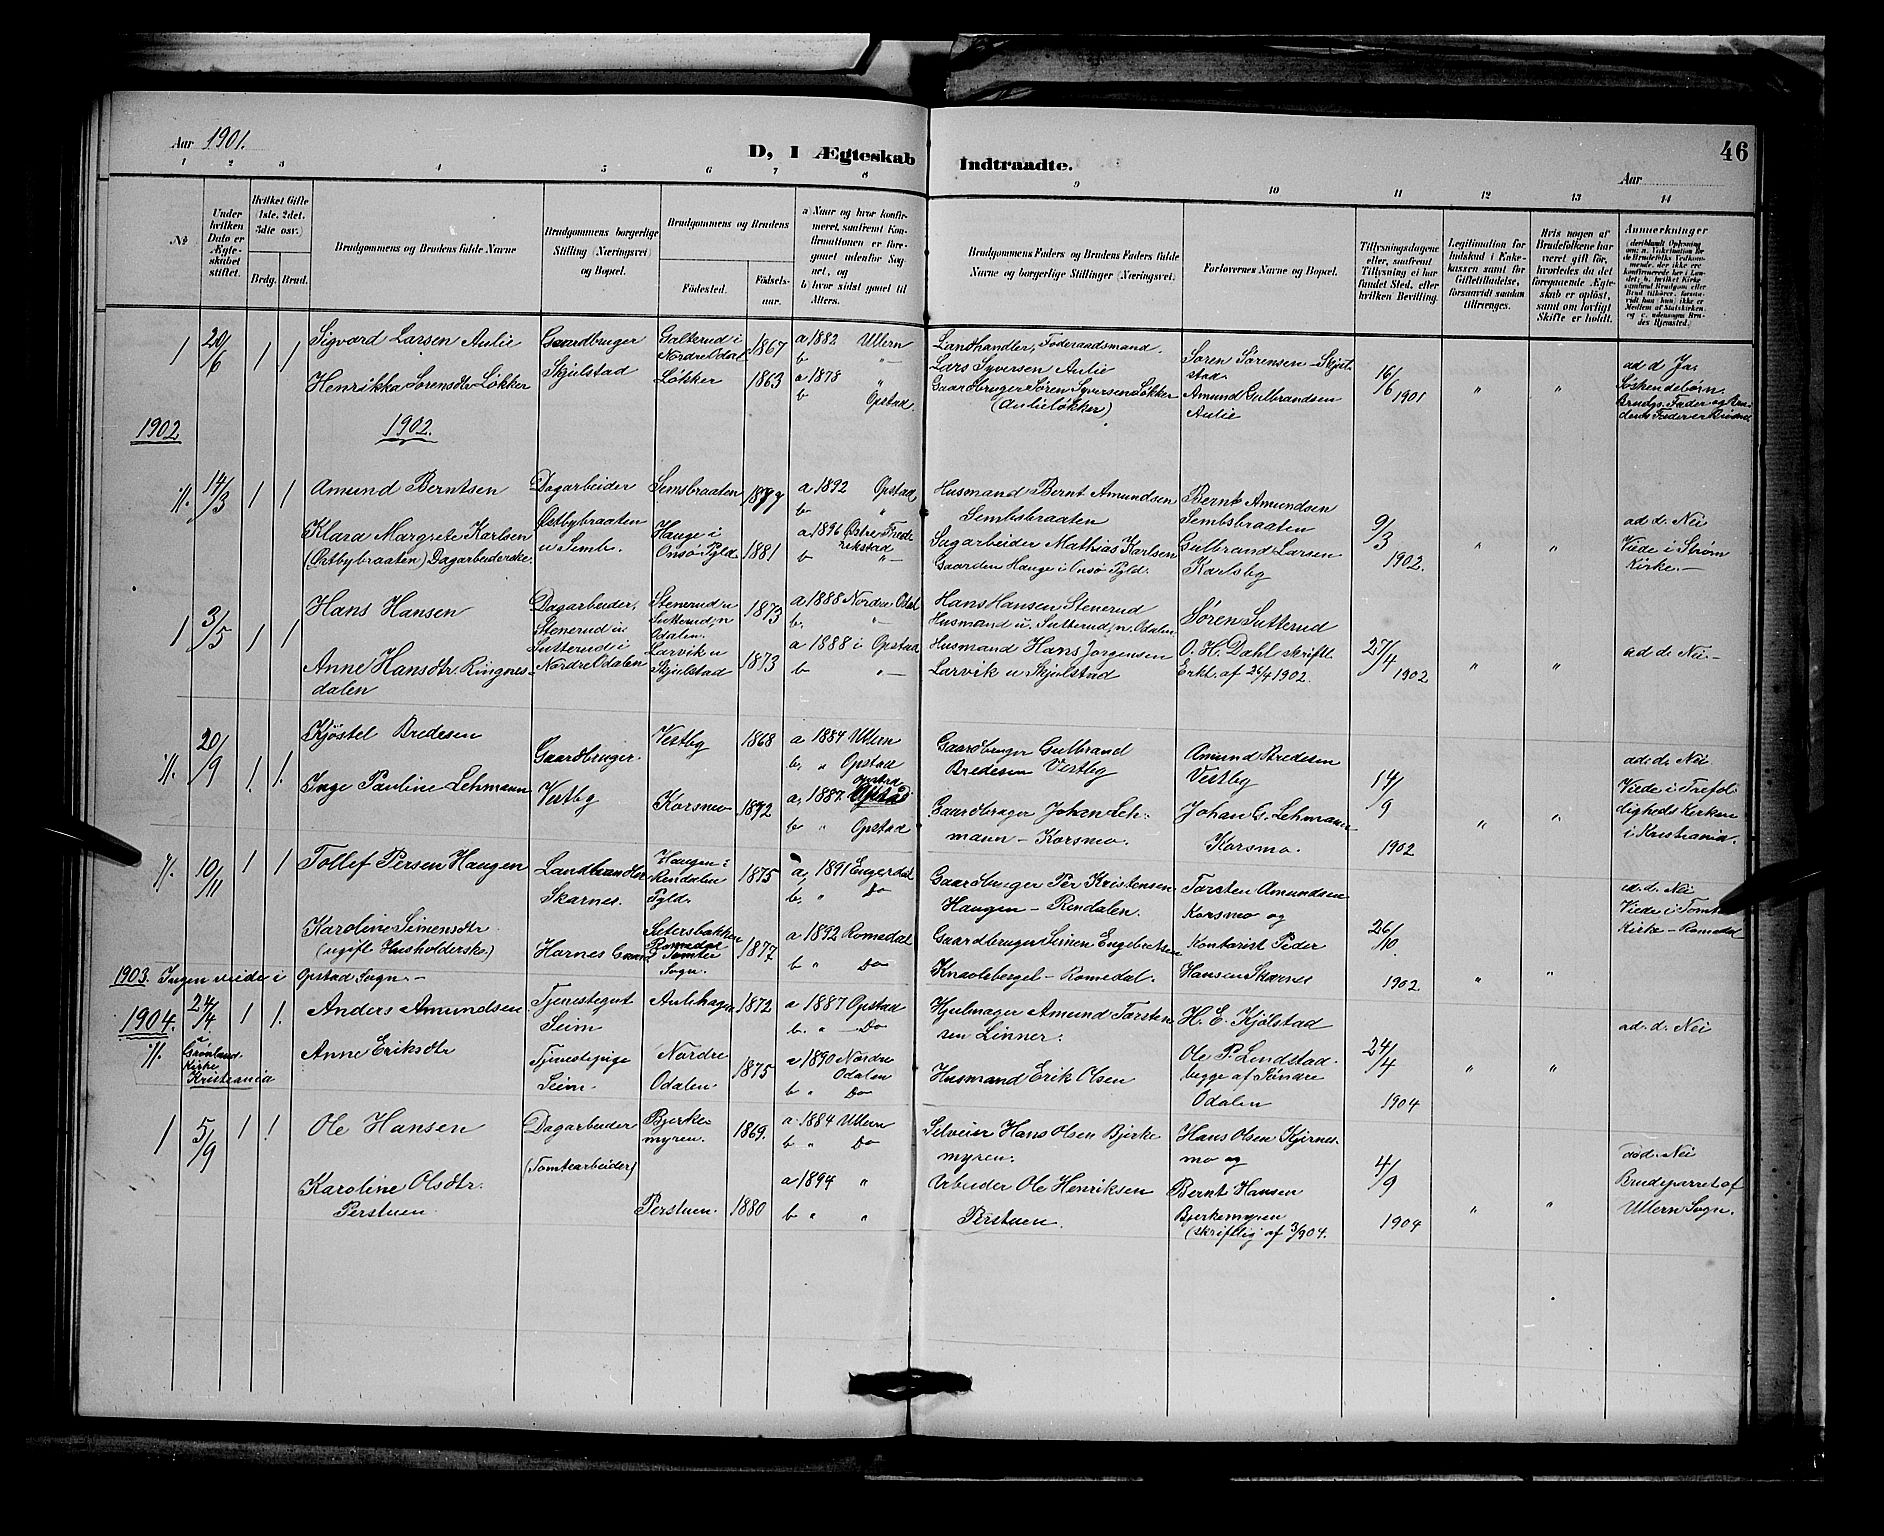 Aar 1901.
D, I Ægteskab Indtraadte.
46
Aar
1 2 3 4 5 6 7 8 9 10 11 12 13 14
No
Under hvilken Dato er Ægteskabet stiftet.
Hvilket Gifte (1ste, 2det, 3die osv.)
Brdg. Brud.
Brudgommens og Brudens fulde Navne
Brudgommens borgerlige Stilling (Næringsvei) og Bopæl.
Brudgommens og Brudens
Fødested. Fødselsaar.
a) Naar og hvor konfirmeret, saafremt Konfirmationen er foregaaet udenfor Sognet, og
b) hvor sidst gaaet til Alters.
Brudgommens Faders og Brudens Faders fulde Navne og borgerlige Stillinger (Næringsvei).
Forlovernes Navne og Bopæl.
Tillysningsdagene eller, saafremt Tillysning ei har fundet Sted, efter hvilken Bevilling.
Legitimation for Indskud i Enkekassen samt for Giftetilladelse, forsaavidt saadan tiltrænges.
Hvis nogen af Brudefolkene har været gift før, hvorledes da det foregaaende Ægteskab er opløst, samt om lovligt Skifte er holdt.
Anmærkninger
1 20/6 1 1
Sigvard Larsen Aulie
Gaardbruger Skjulstad
Galterud i Nordre Odal 1867
a 1882 Ullern
b "
Landhandler, Føderaadsmand. Lars Syversen Aulie
Søren Sørensen Skjulstad
16/6 1901
" "
ad d Ja, Søskendebørn
Brudgs. Fader og Brudens Fader er Brødre
Henrikka Sørensdtr Løkker
Løkker 1863
a 1878 "
b Opstad.
Gaardbruger Søren Syversen Løkker (Aulieløkker)
Amund Gulbrandsen Aulie
1902
1902.
1/. 14/3 1 1
Amund Berntsen
Dagarbeider Østbybraaten u Semb.
Semsbraaten 1879
a 1892 Opstad
b "
Husmand Bernt Amundsen Sembsbraaten
Bernt Amundsen Sembsbraaten
9/3 1902.
" "
ad. d. Nei
Viede i Strøm Kirke.
Klara Margrete Karlsen
(Østbybraaten) Dagarbeiderske.
Hauge i Onsø Pgld 1881
a 1896 Østre Frederikstad
b "
Sagarbeider Mathias Karlsen
Gaarden Hauge i Onsø Pgld.
Gulbrand Larsen Karlsby
1 3/5 1 1
Hans Hansen
Dagarbeider, Stenerud u Sutterud i Nordre Odalen
Stenerud u Sutterud, n Odalen. 1873
a 1888 Nordre Odal
b. "
Hans Hansen Stenerud
Husmand u. Sutterud, n. Odalen.
Søren Sutterud
27/4 1902
" "
ad. d. Nei
Anne Hansdtr. Ringnesdalen
Larvik u Skjulstad 1873
a 1888 i Opstad
b "
Husmand Hans Jorgensen
Larvik u Skjulstad
O. H. Dahl skriftl.
Erkl. af 26/4 1902.
1/. 20/9 1. 1.
Kjøstel Bredesen
Gaardbruger. Vestby
Vestby 1868
a 1884 Ullern
b. " Opstad
Gaardbruger Gulbrand Bredesen Vestby
Amund Bredesen Vestby
14/9 1902
" "
ad. d. Nei
Viede i Trefoldigheds Kirken i Kristiania.
Inge Pauline Lehmann
Korsmo 1872
a, 1887. Opstad
b " Opstad
Gaardbruger Johan Lehmann - Korsmo.
Johan G. Lehmann Korsmo.
1/. 10/11 1 1
Tollef Persen Haugen
Landhandler Skarnes.
Haugen i Rendalen Pgld. 1875
a, 1891 Engerdal
b. " Do
Gaardbruger Per Kristensen Haugen - Rendalen.
Torsten Amundsen Korsmo og
26/10. 1902.
" "
ad. d. Nei
Viede i Tomter Kirke - Romedal
Karoline Simensdtr
(ugift Husholderske)
Harnes
Setersbakken Romedal Tomter Sogn. 1877
a 1892 Romedal
b " Do
Gaardbruger Simen Engebretsen
Knavleberget - Romedal.
Kontorist Peder Hansen Skarnes
1903. Ingen viede i Opstad Sogn. -
1904.
1/. 24/4. 1 1.
i Grønland Kirke Kristiania
Anders Amundsen
Tjenestegut Seim
Aulihagen 1872
a 1887 Opstad
b. " Do
Hjulmager Amund Torstensen Linner.
H. E. Kjølstad
24/4 1904
" "
ad. d. Nei
Anne Eriksdtr
Tjenestepige Seim.
Nordre Odalen 1875
a 1890 Nordre Odalen
b " Do
Husmand Erik Olsen
Ole P. Lundstad.
begge af Søndre Odalen
1 5/9 1 1
Ole Hansen
Dagarbeider (Tomtearbeider)
Bjerkemyren. 1869.
a. 1884 Ullern
b " Do
Selveier Hans Olsen Bjerkemyren.
Hans Olsen Kjernesmo og
4/9 1904
" "
ad. d. Nei
Brudeparret af Ullern Sogn.
Karoline Olsdtr. Perstuen
Perstuen. 1880
a 1894 "
b " "
Arbeider Ole Henriksen Perstuen.
Bernt Hansen Bjerkemyren
(skriftlig af 3/9 04.